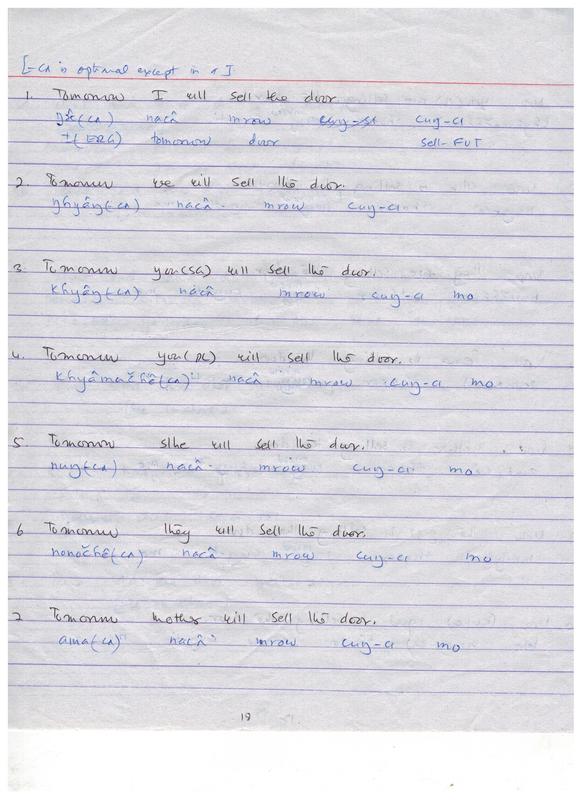 [-CA is optional except in # 1
1. Tomorrow I will sell the door
(CA) nacâ mrow cuŋ-CI
I (ERG) tomorrow door sell-FUT
2. Tomorrow we will sell the door.
ŋhyâŋ(-CA) nacâ mrow cuŋ-CI
3. Tomorrow you(SG) will sell the door.
khyâŋ(CA) nacâ mrow cuŋ-CI mo
4. Tomorrow you(PL) will sell the door.
khyâmačhê(CA) nacâ mrow cuŋ-CI mo
5. Tomorrow s/he will sell the door.
nuŋ(-CA) nacâ mrow cuŋ-CI mo
6 Tomorrow they will sell the door.
nonočhê(CA) nacâ mrow cuŋ-CI mo
7 Tomorrow mother will sell the door.
ama(CA) nacâ mrow cuŋ-CI mo
18